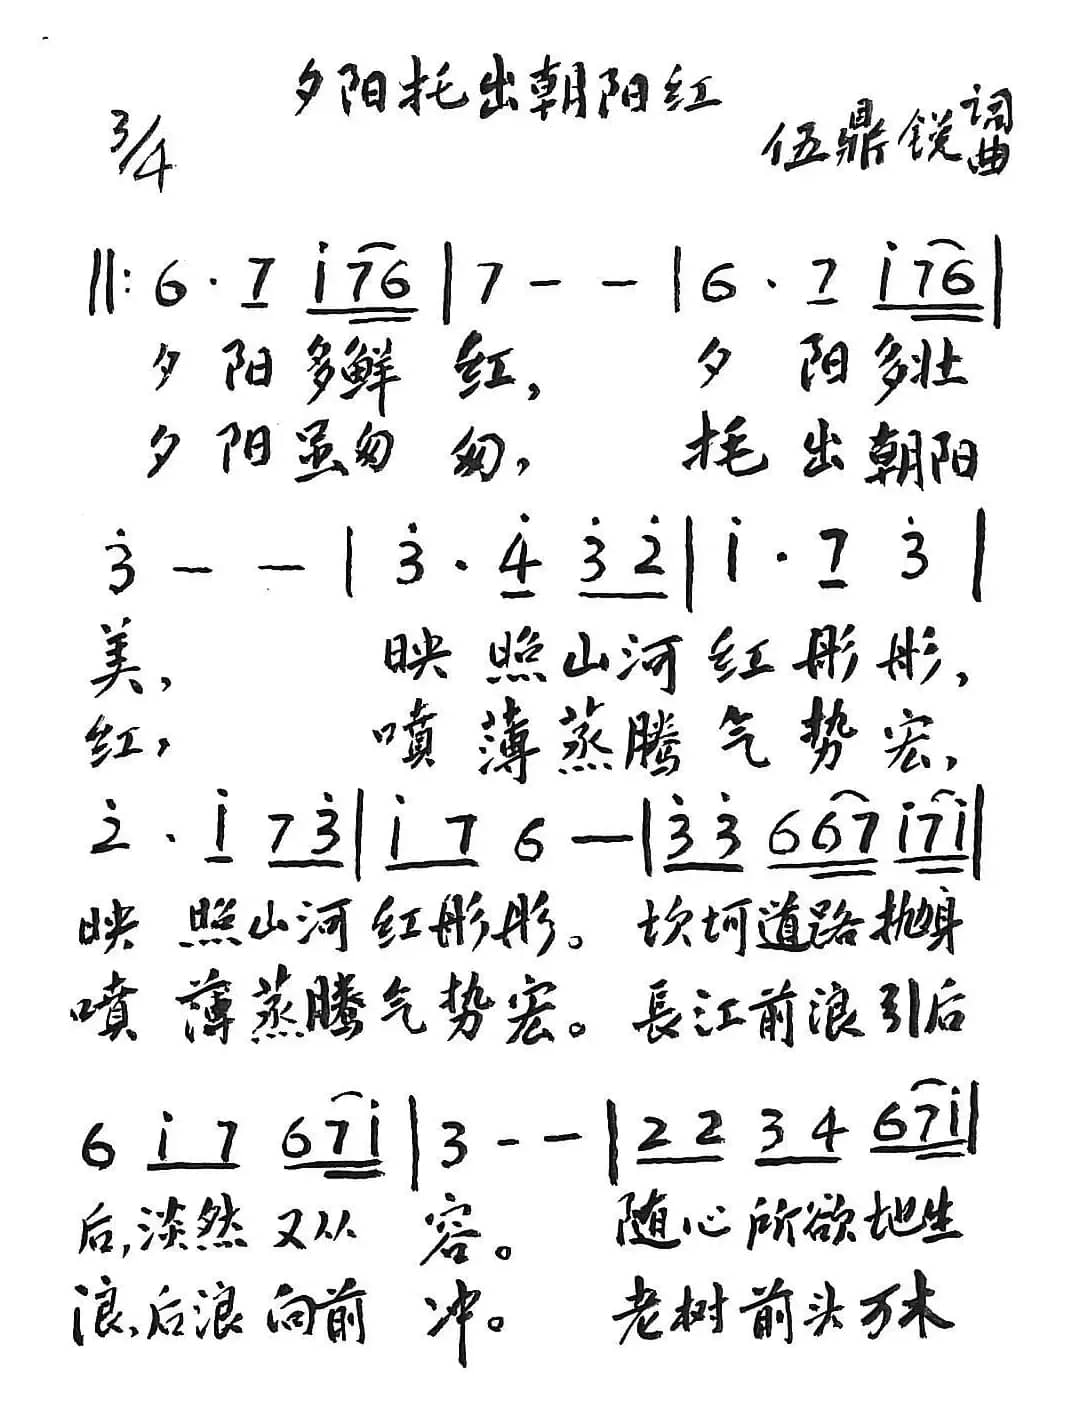 夕阳托出朝阳红
3/4
伍鼎锐 词曲
‖: 6 · 7 i 7 6 | 7 - - | 6 · 7 i 7 6 |
夕阳多鲜红, 夕阳多壮
夕阳虽匆匆, 托出朝阳
3̇ - - | 3̇ · 4̇ 3̇ 2̇ | i · 7 3̇ |
美, 映照山河红彤彤,
红, 噴薄蒸腾气势宏,
2̇ · i 7 3̇ | i 7 6 - | 3̇ 3̇ 6 6 7 i 7 i |
映照山河红彤彤。坎坷道路抛身
噴薄蒸腾气势宏。長江前浪引后
6 i 7 6 7 i | 3 - - | 2 2 3 4 6 7 i |
后,淡然又从容。随心所欲地生
浪,后浪向前冲。老树前头万木